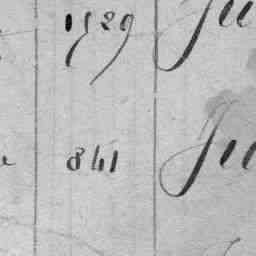 1529 Ju
841 Ju